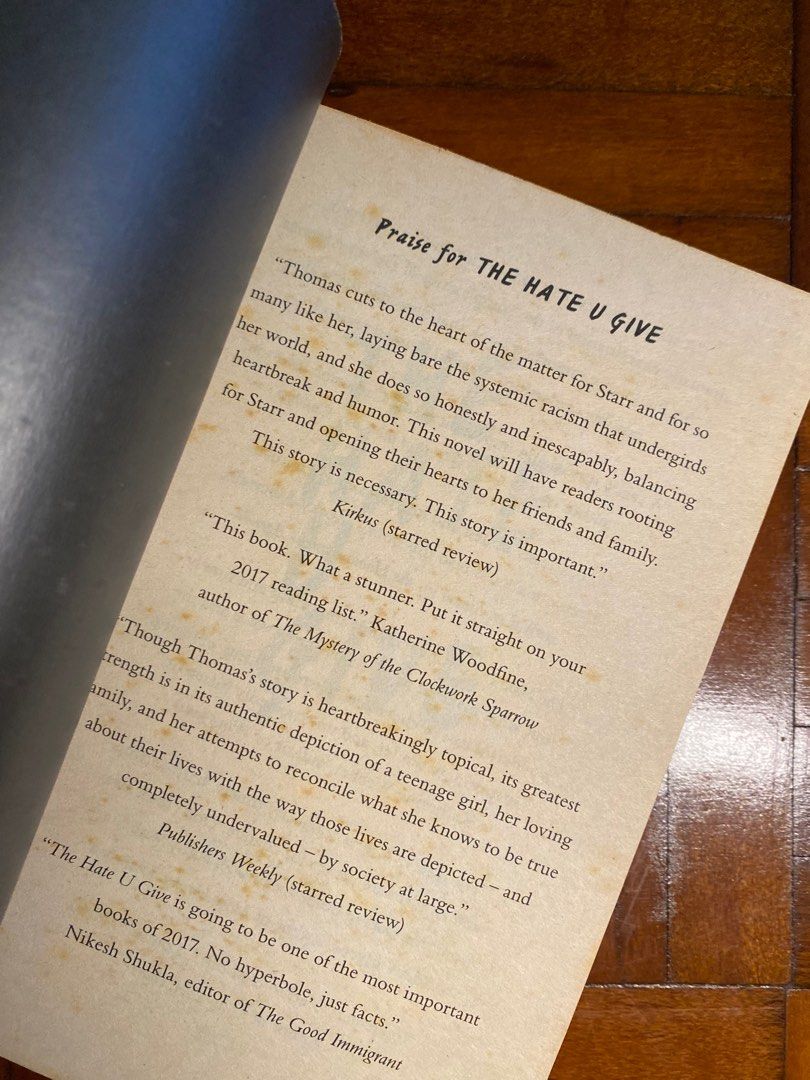 Praise for THE HATE U GIVE
“Thomas cuts to the heart of the matter for Starr and for so
many like her, laying bare the systemic racism that undergirds
her world, and she does so honestly and inescapably, balancing
heartbreak and humor. This novel will have readers rooting
for Starr and opening their hearts to her friends and family.
This story is necessary. This story is important.”
Kirkus (starred review)
“This book. What a stunner. Put it straight on your
2017 reading list.” Katherine Woodfine,
author of The Mystery of the Clockwork Sparrow
“Though Thomas’s story is heartbreakingly topical, its greatest
trength is in its authentic depiction of a teenage girl, her loving
amily, and her attempts to reconcile what she knows to be true
about their lives with the way those lives are depicted – and
completely undervalued – by society at large.”
Publishers Weekly (starred review)
“The Hate U Give is going to be one of the most important
books of 2017. No hyperbole, just facts.”
Nikesh Shukla, editor of The Good Immigrant